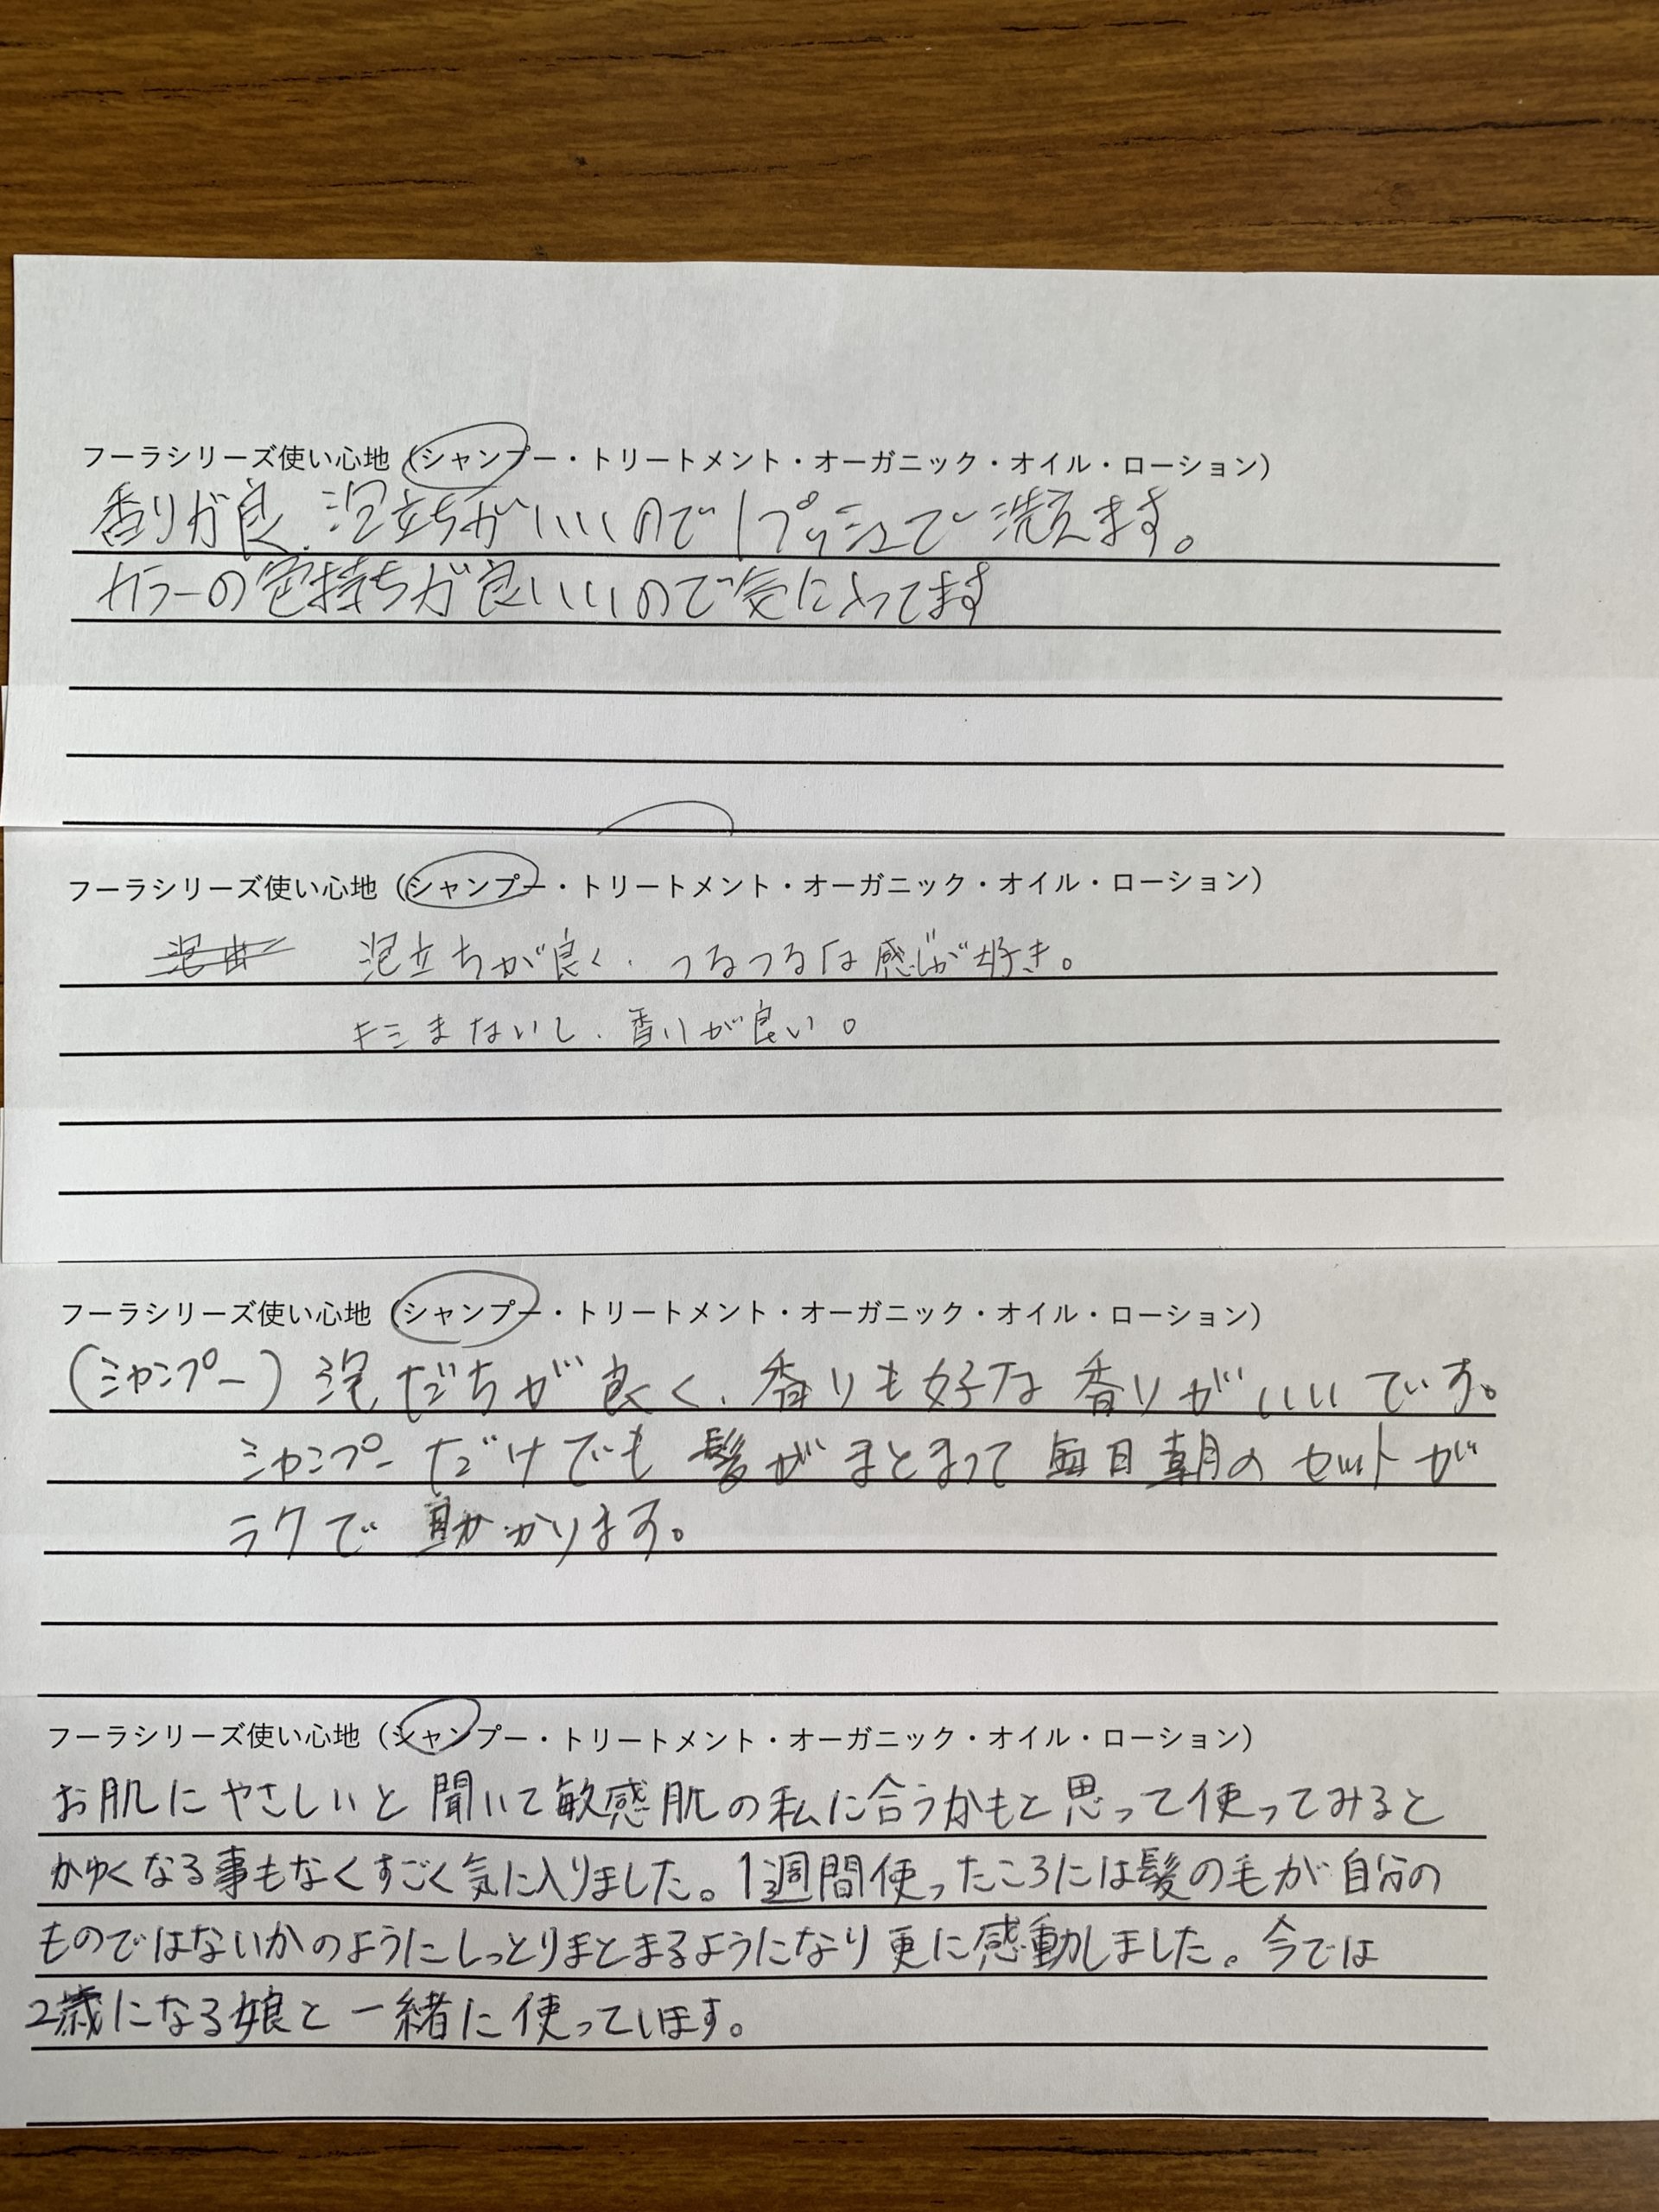 フーラシリーズ使い心地（シャンプー・トリートメント・オーガニック・オイル・ローション）
香りが良、泡立ちがいいので1プッシュで洗えます。
カラーの色持ちが良いいので気に入ってます
フーラシリーズ使い心地（シャンプー・トリートメント・オーガニック・オイル・ローション）
泡立ちが良く、つるつるな感じが好き。
キシまないし、香りが良い。
フーラシリーズ使い心地（シャンプー・トリートメント・オーガニック・オイル・ローション）
（シャンプー）泡だちが良く、香りも好な香りがいいです。
シャンプーだけでも髪がまとまって毎日朝のセットが
ラクで助かります。
フーラシリーズ使い心地（シャンプー・トリートメント・オーガニック・オイル・ローション）
お肌にやさしいと聞いて敏感肌の私に合うかもと思って使ってみると
かゆくなる事もなくすごく気に入りました。1週間使ったころには髪の毛が自分の
ものではないかのようにしっとりまとまるようになり更に感動しました。今では
2歳になる娘と一緒に使っています。